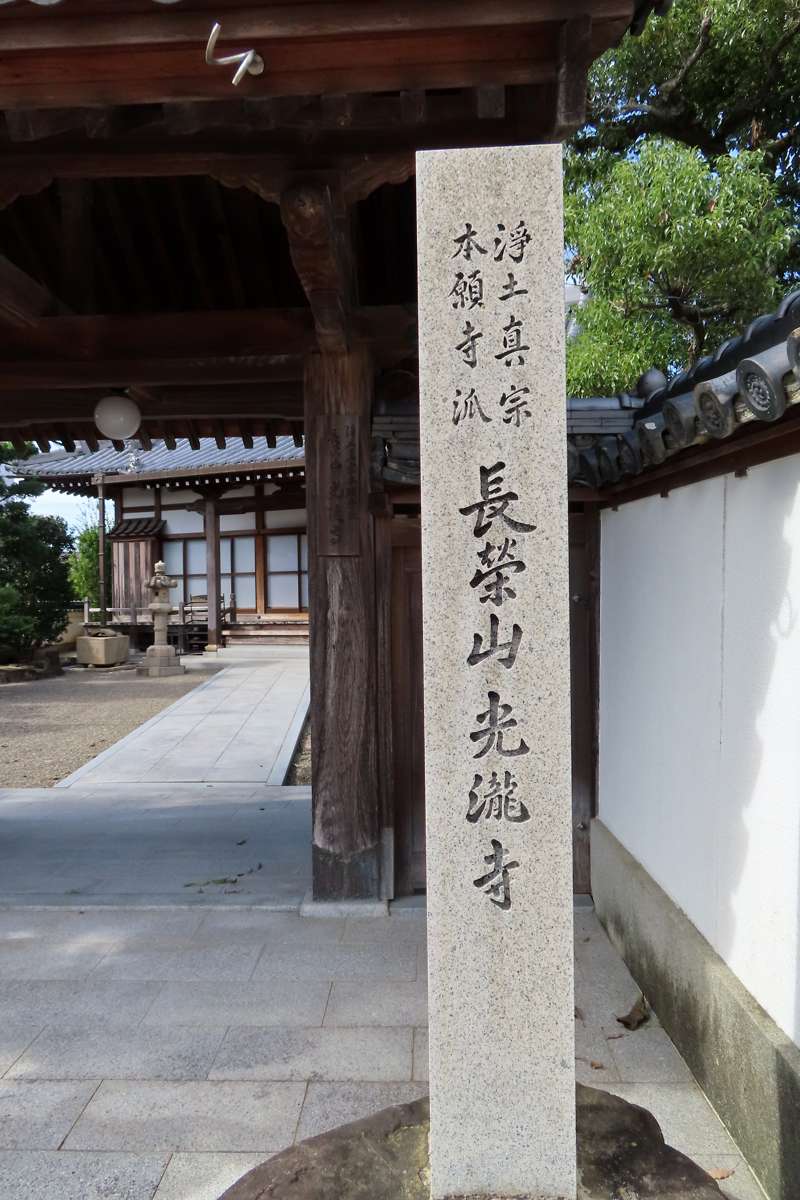 淨土真宗
本願寺派
長榮山光瀧寺